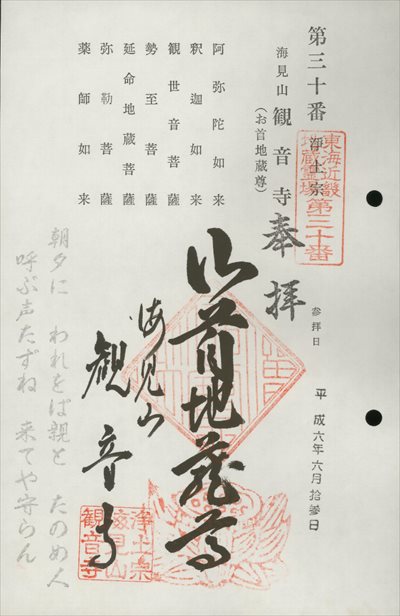 第三十番
浄土宗
東海近畿
地蔵霊場
第三十番
海見山 観音寺
(お首地蔵尊)
奉拝
参拝日
平成六年六月拾参日
阿弥陀如来
釈迦如来
観世音菩薩
勢至菩薩
延命地蔵菩薩
弥勒菩薩
薬師如来
御首地蔵尊
海見山
観音寺
浄土宗
海見山
観音寺
朝夕に われをば親と たのめ人
呼ぶ声たずね 来てや守らん